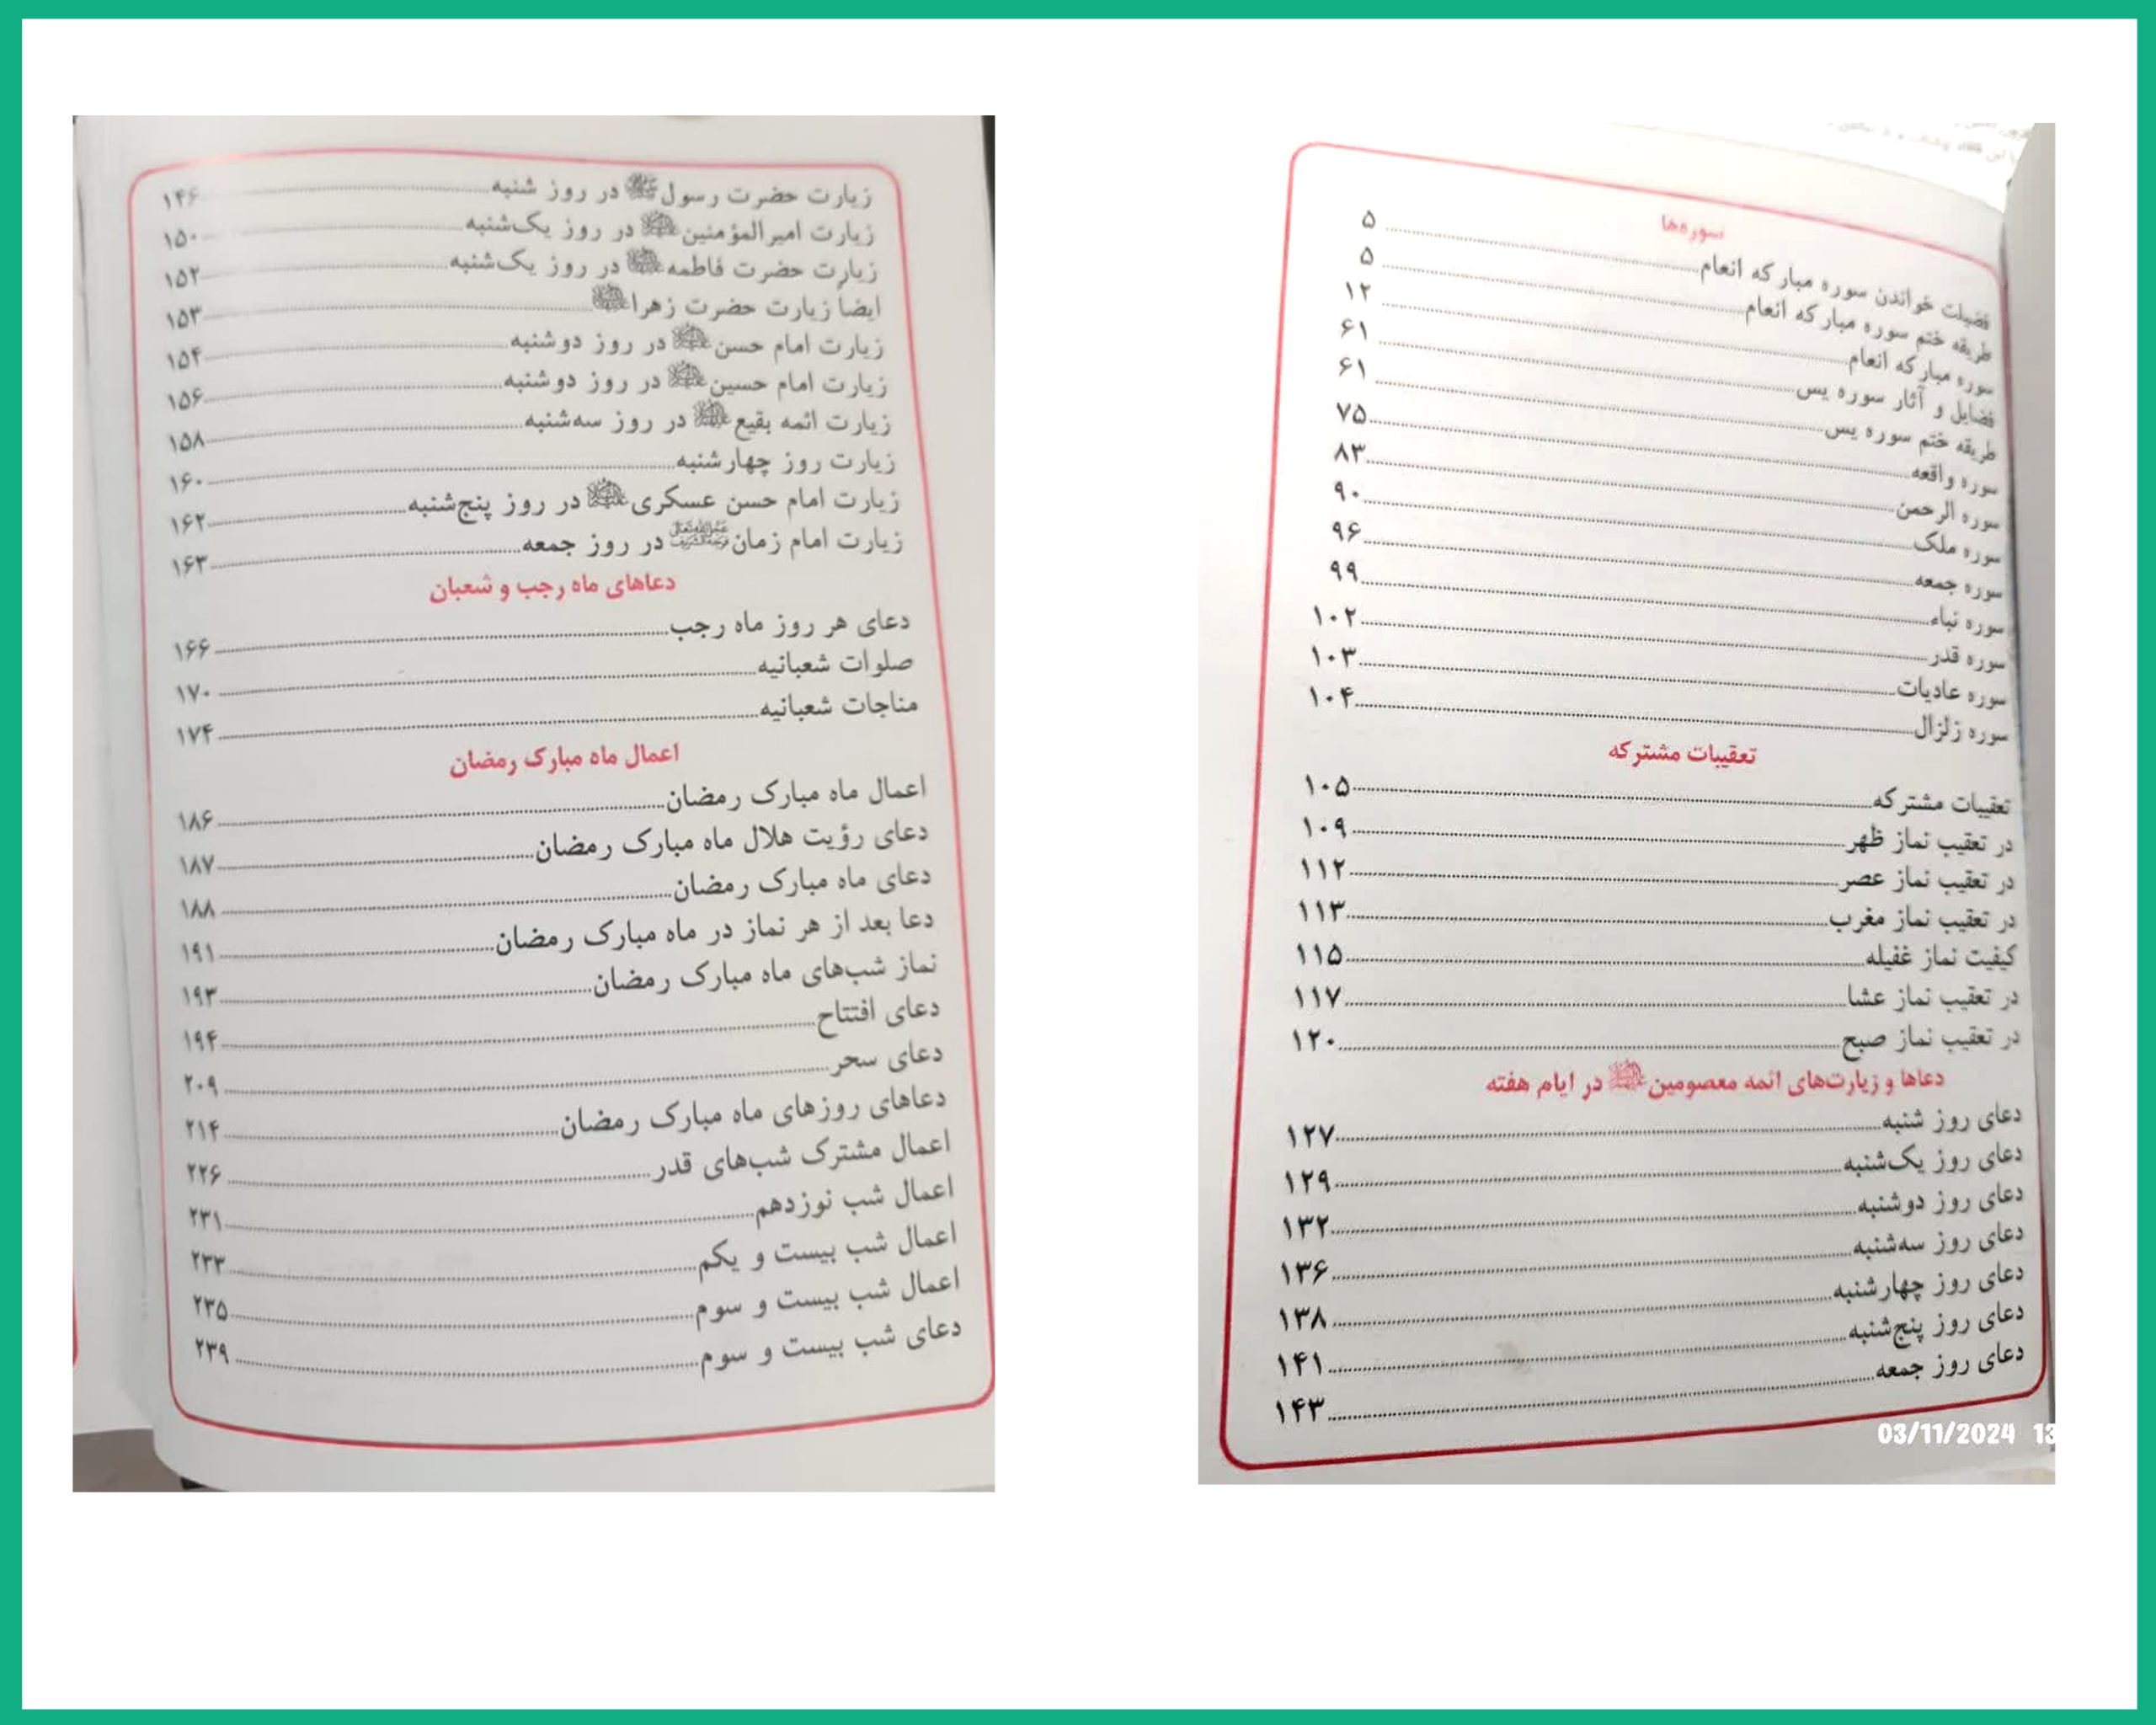 سوره‌ها
فضیلت خواندن سوره مبارکه انعام ۵
طریقه ختم سوره مبارکه انعام ۵
سوره مبارکه انعام ۱۲
فضایل و آثار سوره یس ۶۱
طریقه ختم سوره یس ۶۱
سوره واقعه ۷۵
سوره الرحمن ۸۳
سوره ملک ۹۰
سوره جمعه ۹۶
سوره نباء ۹۹
سوره قدر ۱۰۲
سوره عادیات ۱۰۳
سوره زلزال ۱۰۴
تعقیبات مشترکه
تعقیبات مشترکه ۱۰۵
در تعقیب نماز ظهر ۱۰۹
در تعقیب نماز عصر ۱۱۲
در تعقیب نماز مغرب ۱۱۳
کیفیت نماز غفیله ۱۱۵
در تعقیب نماز عشا ۱۱۷
در تعقیب نماز صبح ۱۲۰
دعاها و زیارت‌های ائمه معصومین در ایام هفته
دعای روز شنبه ۱۲۷
دعای روز یک‌شنبه ۱۲۹
دعای روز دوشنبه ۱۳۲
دعای روز سه‌شنبه ۱۳۶
دعای روز چهارشنبه ۱۳۸
دعای روز پنج‌شنبه ۱۴۱
دعای روز جمعه ۱۴۳
03/11/2024 13
زیارت حضرت رسول ﷺ در روز شنبه ۱۴۶
زیارت امیرالمؤمنین در روز یک‌شنبه ۱۵۰
زیارت حضرت فاطمه در روز یک‌شنبه ۱۵۲
ایضاً زیارت حضرت زهرا ۱۵۳
زیارت امام حسن در روز دوشنبه ۱۵۴
زیارت امام حسین در روز دوشنبه ۱۵۶
زیارت ائمه بقیع در روز سه‌شنبه ۱۵۸
زیارت روز چهارشنبه ۱۶۰
زیارت امام حسن عسکری در روز پنج‌شنبه ۱۶۲
زیارت امام زمان در روز جمعه ۱۶۳
دعاهای ماه رجب و شعبان
دعای هر روز ماه رجب ۱۶۶
صلوات شعبانیه ۱۷۰
مناجات شعبانیه ۱۷۴
اعمال ماه مبارک رمضان
اعمال ماه مبارک رمضان ۱۸۶
دعای رؤیت هلال ماه مبارک رمضان ۱۸۷
دعای ماه مبارک رمضان ۱۸۸
دعا بعد از هر نماز در ماه مبارک رمضان ۱۹۱
نماز شب‌های ماه مبارک رمضان ۱۹۳
دعای افتتاح ۱۹۴
دعای سحر ۲۰۹
دعاهای روزهای ماه مبارک رمضان ۲۱۴
اعمال مشترک شب‌های قدر ۲۲۶
اعمال شب نوزدهم ۲۳۱
اعمال شب بیست و یکم ۲۳۳
اعمال شب بیست و سوم ۲۳۵
دعای شب بیست و سوم ۲۳۹